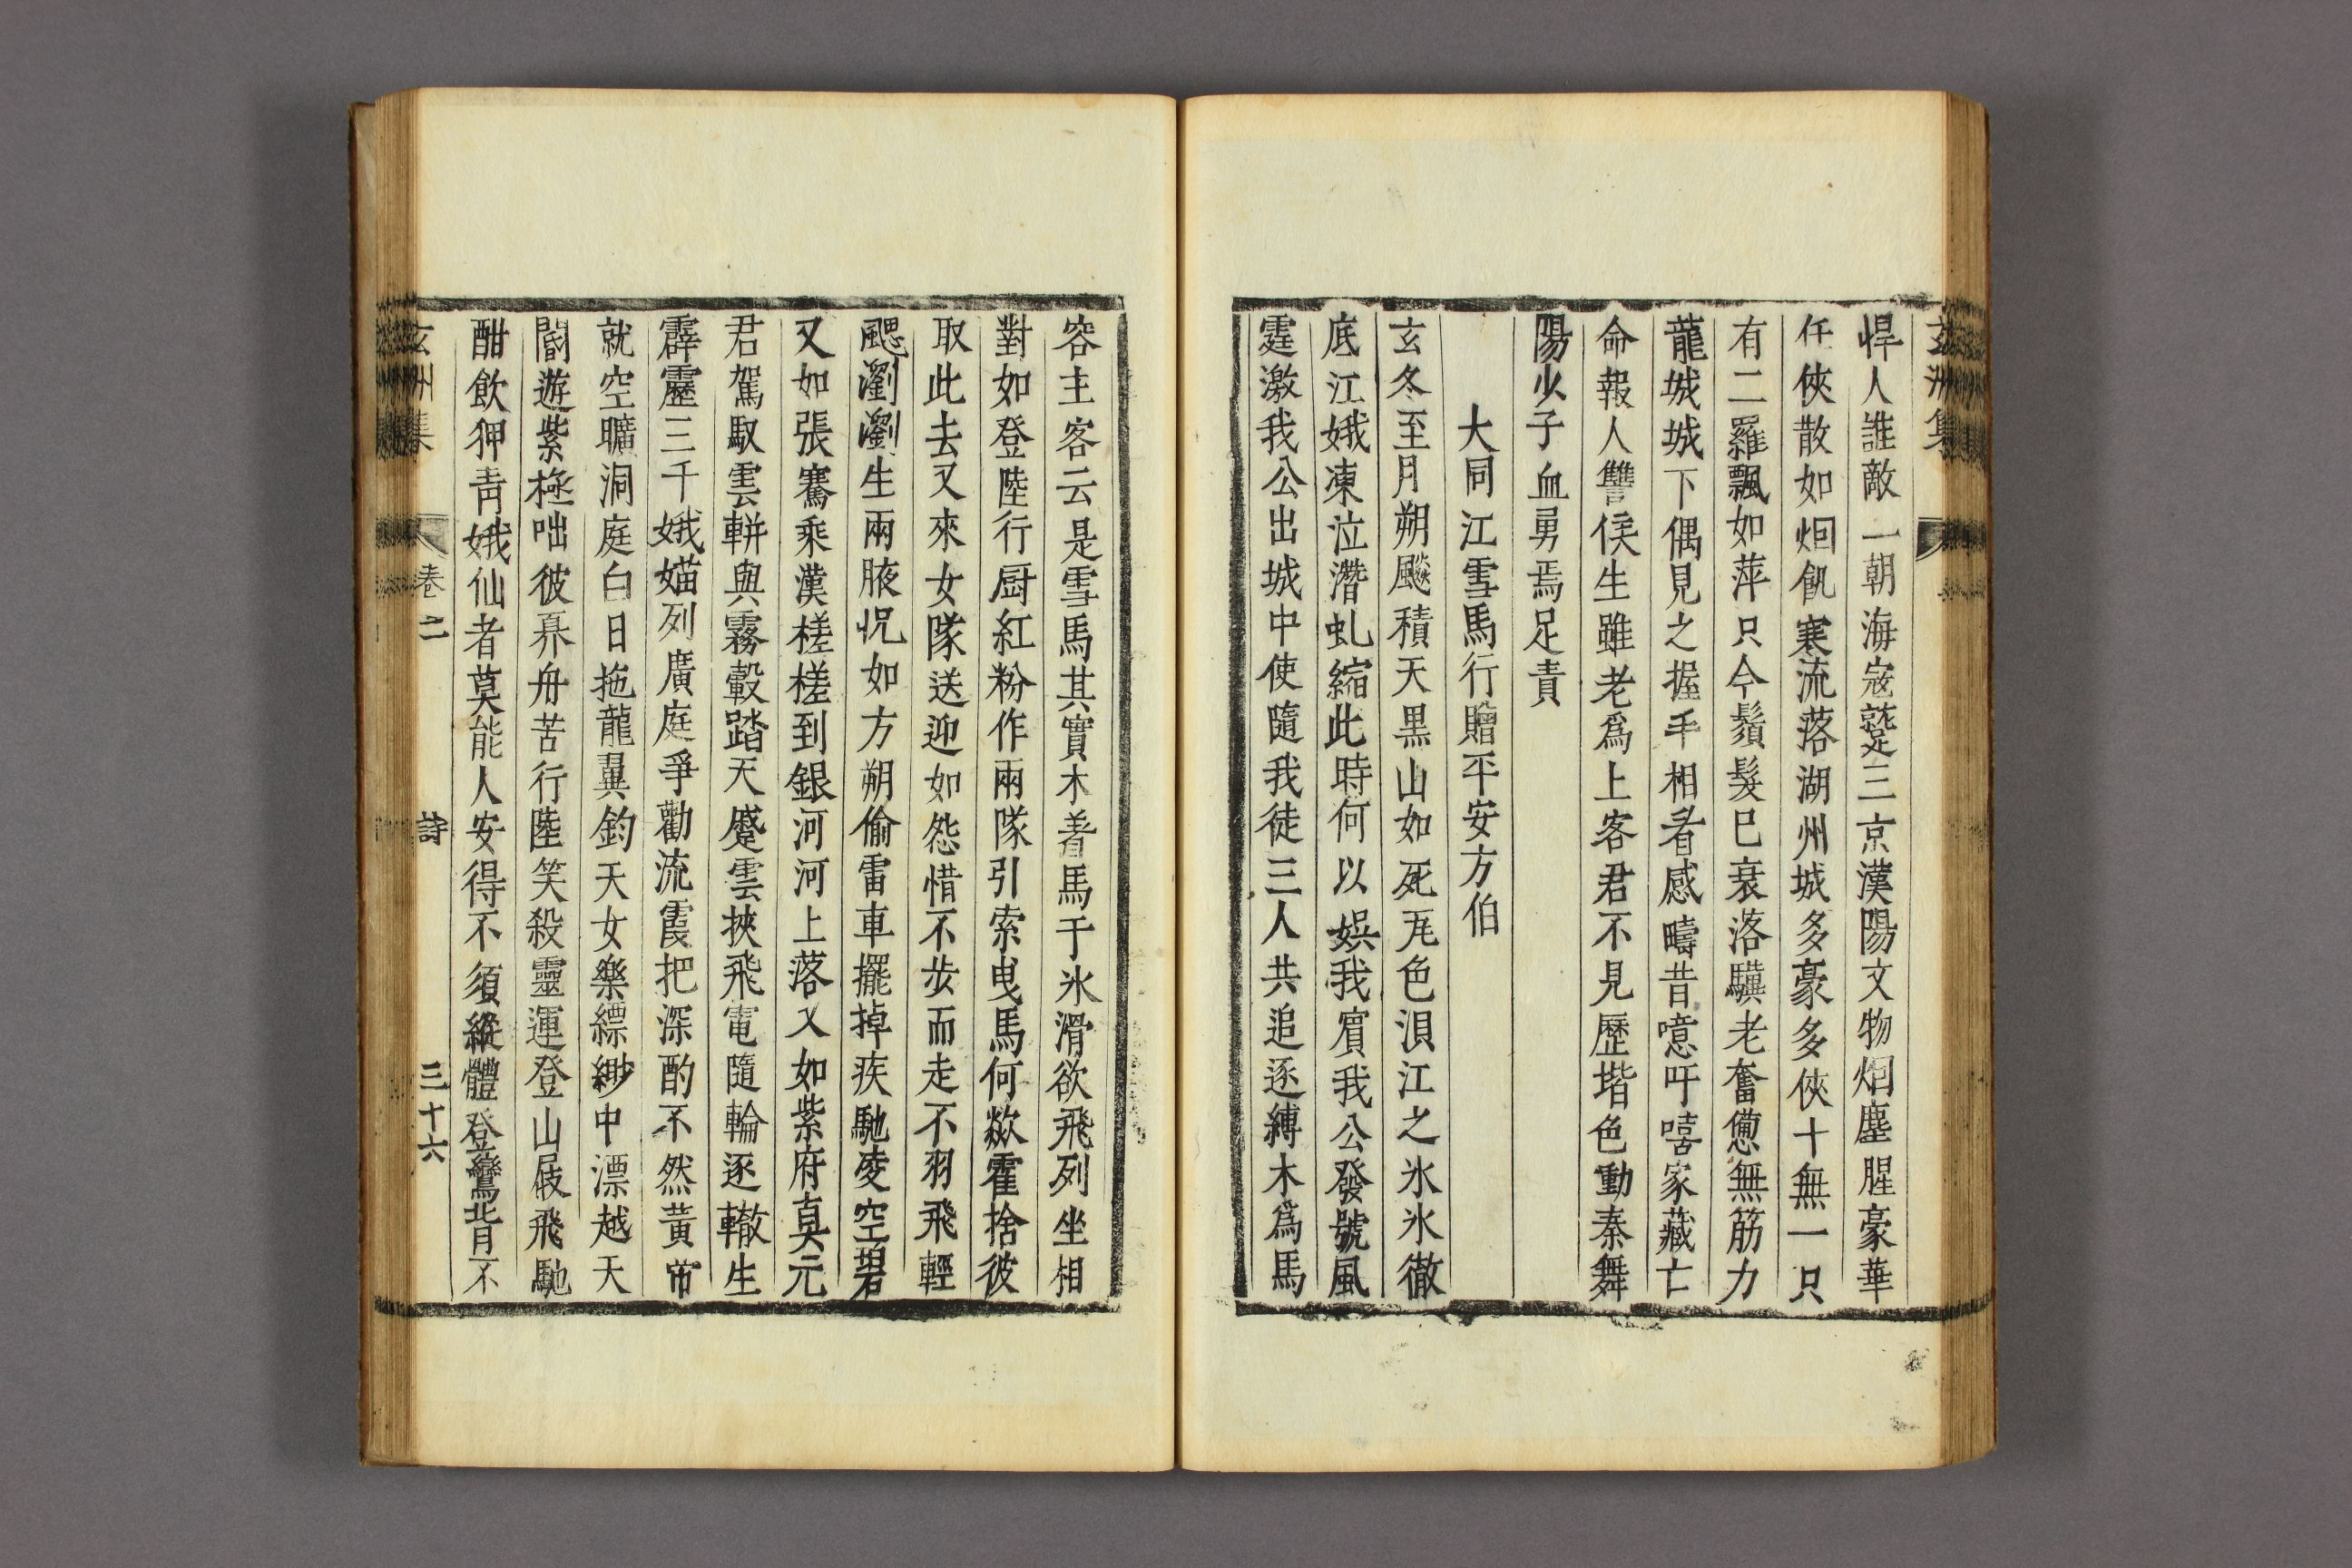 玄洲集
悍人誰敵一朝海寇蹙三京漢陽文物烟塵腥豪華
任俠散如烟飢寒流落湖州城多豪多俠十無一只
有二羅飄如萍只今鬚髮已衰落驥老奮憊無筋力
龍城城下偶見之握手相看感疇昔噫吁嘻家藏亡
命報人讐侯生雖老爲上客君不見歷堦色動秦舞
陽少子血勇焉足責
大同江雪馬行贈平安方伯
玄冬至月朔飈積天黒山如死灰色浿江之氷氷徹
底江娥凍泣潛虬縮此時何以娛我賓我公發號風
霆激我公出城中使隨我徒三人共追逐縛木爲馬
容主客云是雪馬其實木着馬于氷滑欲飛列坐相
對如登陸行厨紅粉作兩隊引索曳馬何歘霍捨彼
取此去又來女隊送迎如怨惜不步而走不羽飛輕
颸瀏瀏生兩腋怳如方朔偷雷車擺掉疾馳凌空碧
又如張騫乘漢槎槎到銀河河上落又如紫府真元
君駕馭雲軿與霧轂踏天蹙雲挾飛電隨輪逐轍生
霹靂三千娥媌列廣庭爭勸流霞把深酌不然黄帝
就空曠洞庭白日拖龍翼鈞天女樂縹緲中漂越天
閽遊紫極咄彼奡舟苦行陸笑殺靈運登山屐飛馳
酣飲狎靑娥仙者莫能人安得不須縱體登鸞背不
玄洲集 卷二 詩 三十六